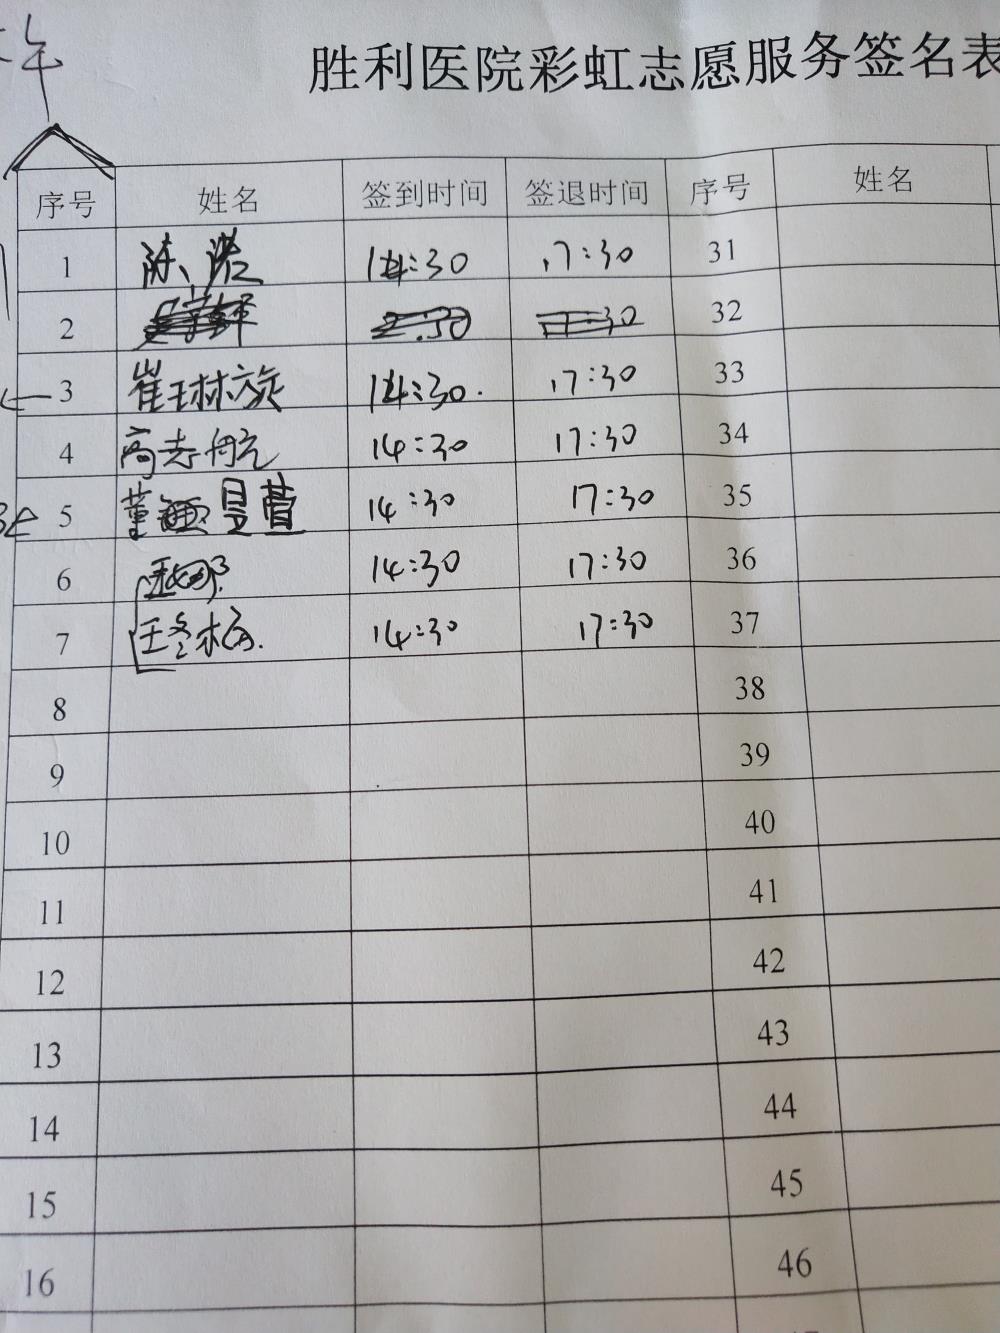 胜利医院彩虹志愿服务签名表
序号 姓名 签到时间 签退时间 序号 姓名
1 陈浩 14:30 17:30 31
2 2:30 17:30 32
3 崔琳旋 14:30. 17:30 33
4 高志航 14:30 17:30 34
5 董曼萱 14:30 17:30 35
6 14:30 17:30 36
7 王冬梅. 14:30 17:30 37
8 38
9 39
10 40
11 41
12 42
13 43
14 44
15 45
16 46